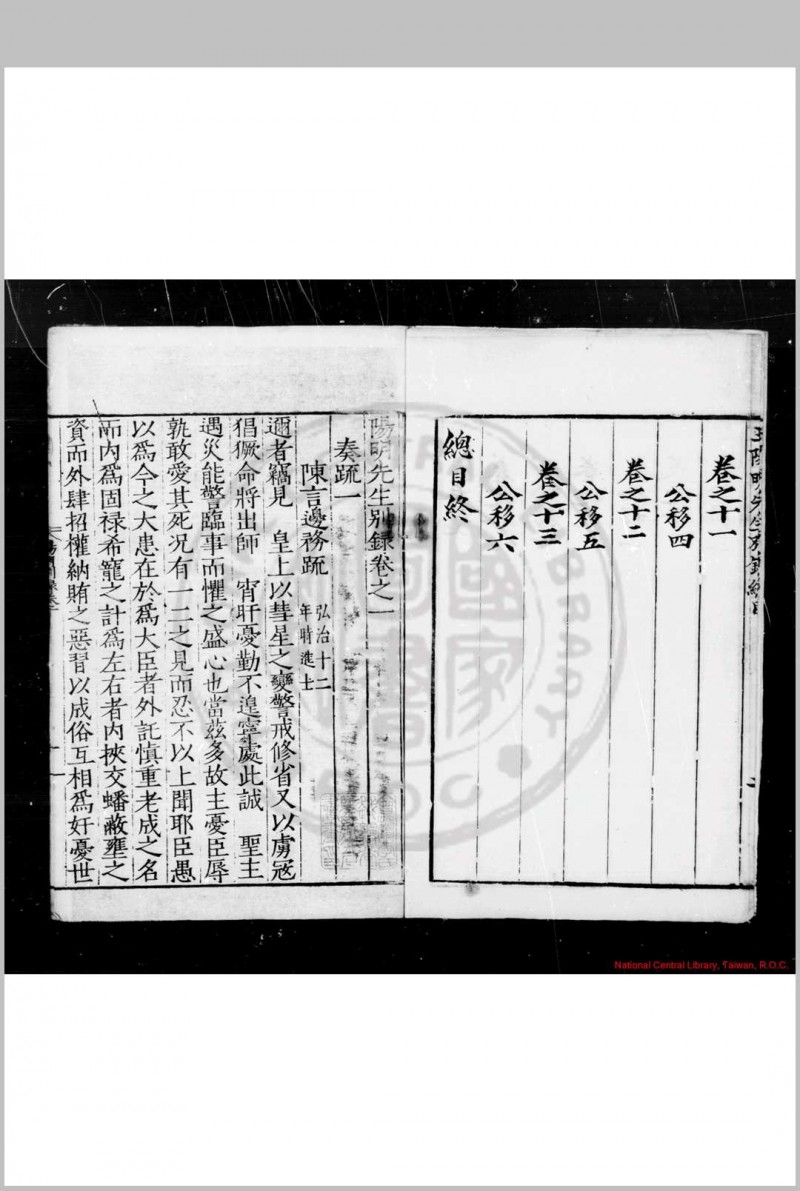 卷之十一
公移四
卷之十二
公移五
卷之十三
公移六
總目終
陽明先生别録卷之一
奏疏一
陳言邊務疏 弘治十二
年時進士
邇者竊見 皇上以彗星之變警戒修省又以虜冦
猖獗命將出師 宵旰憂勤不遑寧處此誠 聖主
遇災能警臨事而懼之盛心也當兹多故主憂臣辱
孰敢愛其死况有一二之見而忍不以上聞耶臣愚
以爲今之大患在於爲大臣者外託慎重老成之名
而内爲固禄希寵之計爲左右者内挾交蟠蔽壅之
資而外肆招權納賄之惡習以成俗互相爲奸憂世
National Central Library, Taiwan, R.O.C